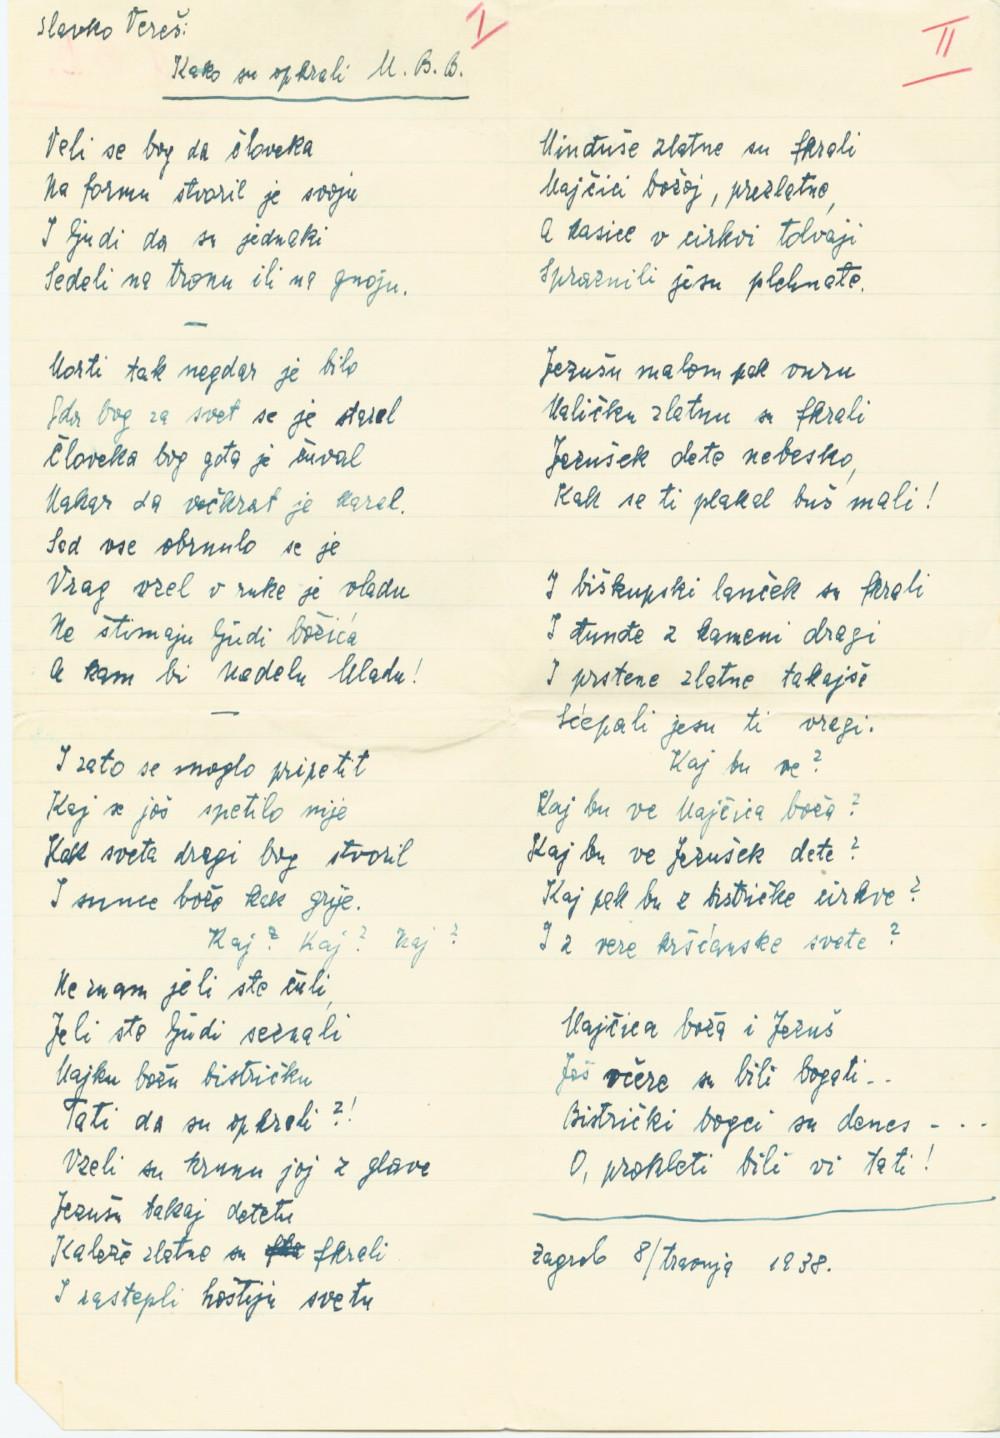 Slavko Vereš:
I
Kako su opkrali M. B. B.
Veli se bog da človeka
Na formu stvoril je svoju
I ljudi da su jednaki
Sedeli na tronu ili na gnoju.
—
Morti tak negdar je bilo
Gda bog za svet se je starel
Človeka bog gda je čuval
Makar da večkrat je karal.
Sad vse obrnulo se je
Vrag vzel v ruke je vladu
Ne štimaju ljudi božića
A kam bi nedelu Mladu!
—
I zato se moglo pripetit
Kaj se još spetilo nije
Kak sveta dragi bog stvoril
I sunce bože kak grije.
Kaj? Kaj? Kaj?
Ne znam jeli ste čuli,
Jeli ste ljudi seznali
Majku božu bistričku
Tati da su opkrali?!
Vzeli su krunu joj z glave
Jezušu takaj detetu
Kaleže zlatne su fkrali
I rastepli hostiju svetu
II
Minđuše zlatne su fkrali
Majčici božoj, prezlatne,
A kasice v cirkvi tolvaji
Spraznili jesu plehnate.
Jezušu malom pak vuru
Maličku zlatnu su fkrali
Jezušek dete nebesko,
Kak se ti plakal buš mali!
I biškupski lanček su fkrali
I đunđe z kameni dragi
I prstene zlatne takajše
Sćepali jesu ti vragi.
Kaj bu ve?
Kaj bu ve Majčica boža?
Kaj bu ve Jezušek dete?
Kaj pak bu z bistričke cirkve?
I z vere kršćanske svete?
Majčica boža i Jezuš
Još včere su bili bogati..
Bistrički bogci su denes - . .
O, prokleti bili vi tati!
Zagreb 8/travnja 1938.